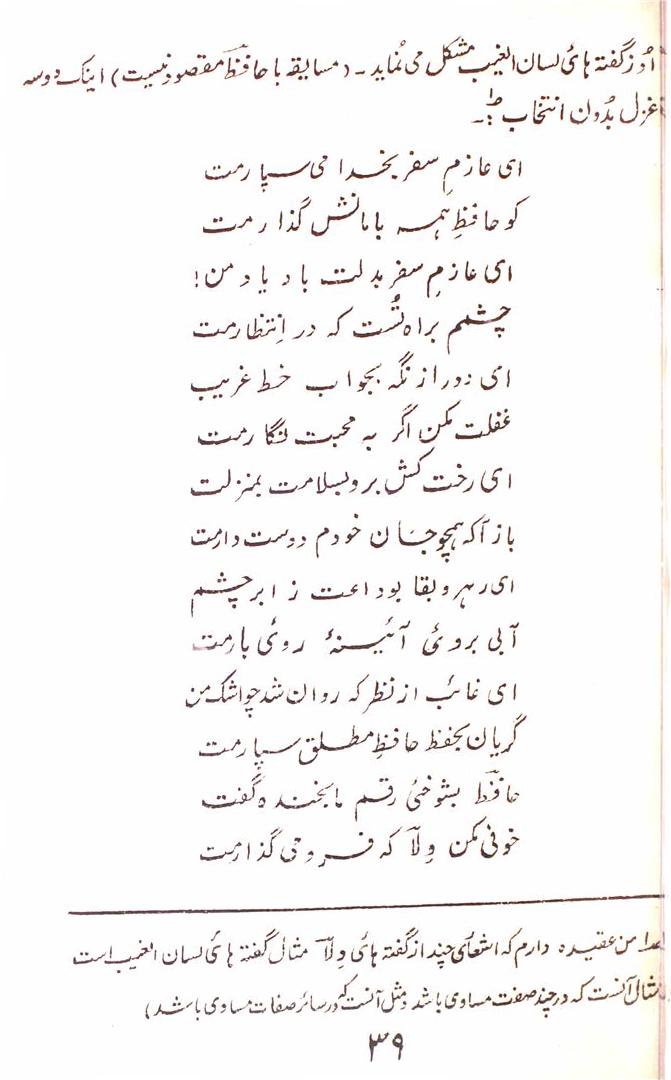 اُو ز گفته هائ لسان الغیب مشکل می نماید ۔ (مسابقه با حافظؔ مقصود نیست) اینک دو سه
غزل بدُون انتخاب
ای عازمِ سفر بخدا می سپارمت
کو حافظِ همه بامانش گذارمت
ای عازمِ سفر بدلت باد یاد من!
چشمم براه تُست که در اِنتظارمت
ای دور از نگه بجواب خط غریب
غفلت مکن اگر به محبت نگارمت
ای رخت کش برو بسلامت بمنزلت
باز آ که همچو جان خودم دوست دارمت
ای رهرو بقا بوداعت ز ابر چشم
آبی بروئ آئینۂ روئ بارمت
ای غائب از نظر که روان شد چو اشک من
گریان بحفظ حافظِ مطلق سپارمت
حافظؔ بشوخیٔ رقم ما بخنده گفت
خونی مکن وِلاؔ که فرو می گذارمت
من عقیده دارم که اشعاری چند از گفته هائ وِلاؔ مثال گفته هائ لسان الغیب است
مثال آنست که در چند صفت مساوی باشد و مثل آنست که در سائر صفات مساوی باشد)
۳۹